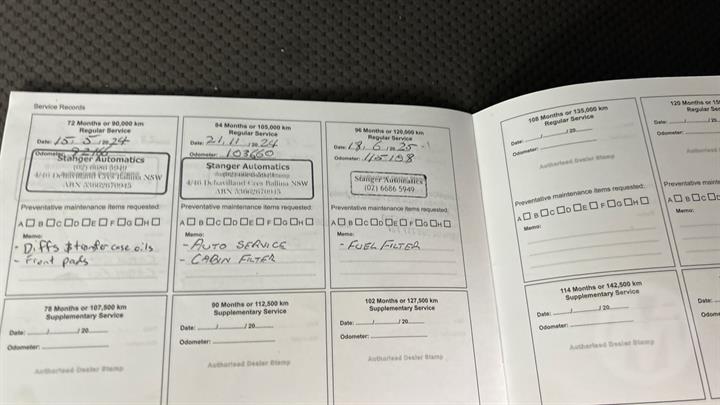 Service Records
72 Months or 90,000 km
Regular Service
Date: 15, 5 in 24
Odometer:
Stanger Automatics
(02) 6686 5949
4/40 DeHavilland Cres Ballina NSW
ABN
Preventative maintenance items requested:
A B C D E F G H
Memo:
- Diffs & transfer case oils
- Front pads
84 Months or 105,000 km
Regular Service
Date: 21, 11 24
Odometer: 103660
Stanger Automatics
4/40 DeHavilland Cres Ballina NSW
ABN
Preventative maintenance items requested:
A B C D E F G H
Memo:
- AUTO SERVICE
- CABIN FILTER
96 Months or 120,000 km
Regular Service
Date: 18, 6 25
Odometer:
Stanger Automatics
(02) 6686 5949
Preventative maintenance items requested:
A B C D E F G H
Memo:
- FUEL FILTER
78 Months or 107,500 km
Supplementary Service
Date: / /20
Odometer:
Authorised Dealer Stamp
90 Months or 112,500 km
Supplementary Service
Date: / /20
Odometer:
Authorised Dealer Stamp
102 Months or 127,500 km
Supplementary Service
Date: / /20
Odometer:
Authorised Dealer Stamp
108 Months or 135,000 km
Regular Service
Date: / /20
Odometer:
Authorised Dealer Stamp
Preventative maintenance items requested:
A B C D E F G H
Memo:
114 Months or 142,500 km
Supplementary Service
Date: / /20
Odometer:
Authorised Dealer Stamp
120 Months or
Regular
Date:
Odometer:
Preventative
A B C
Memo:
Date: